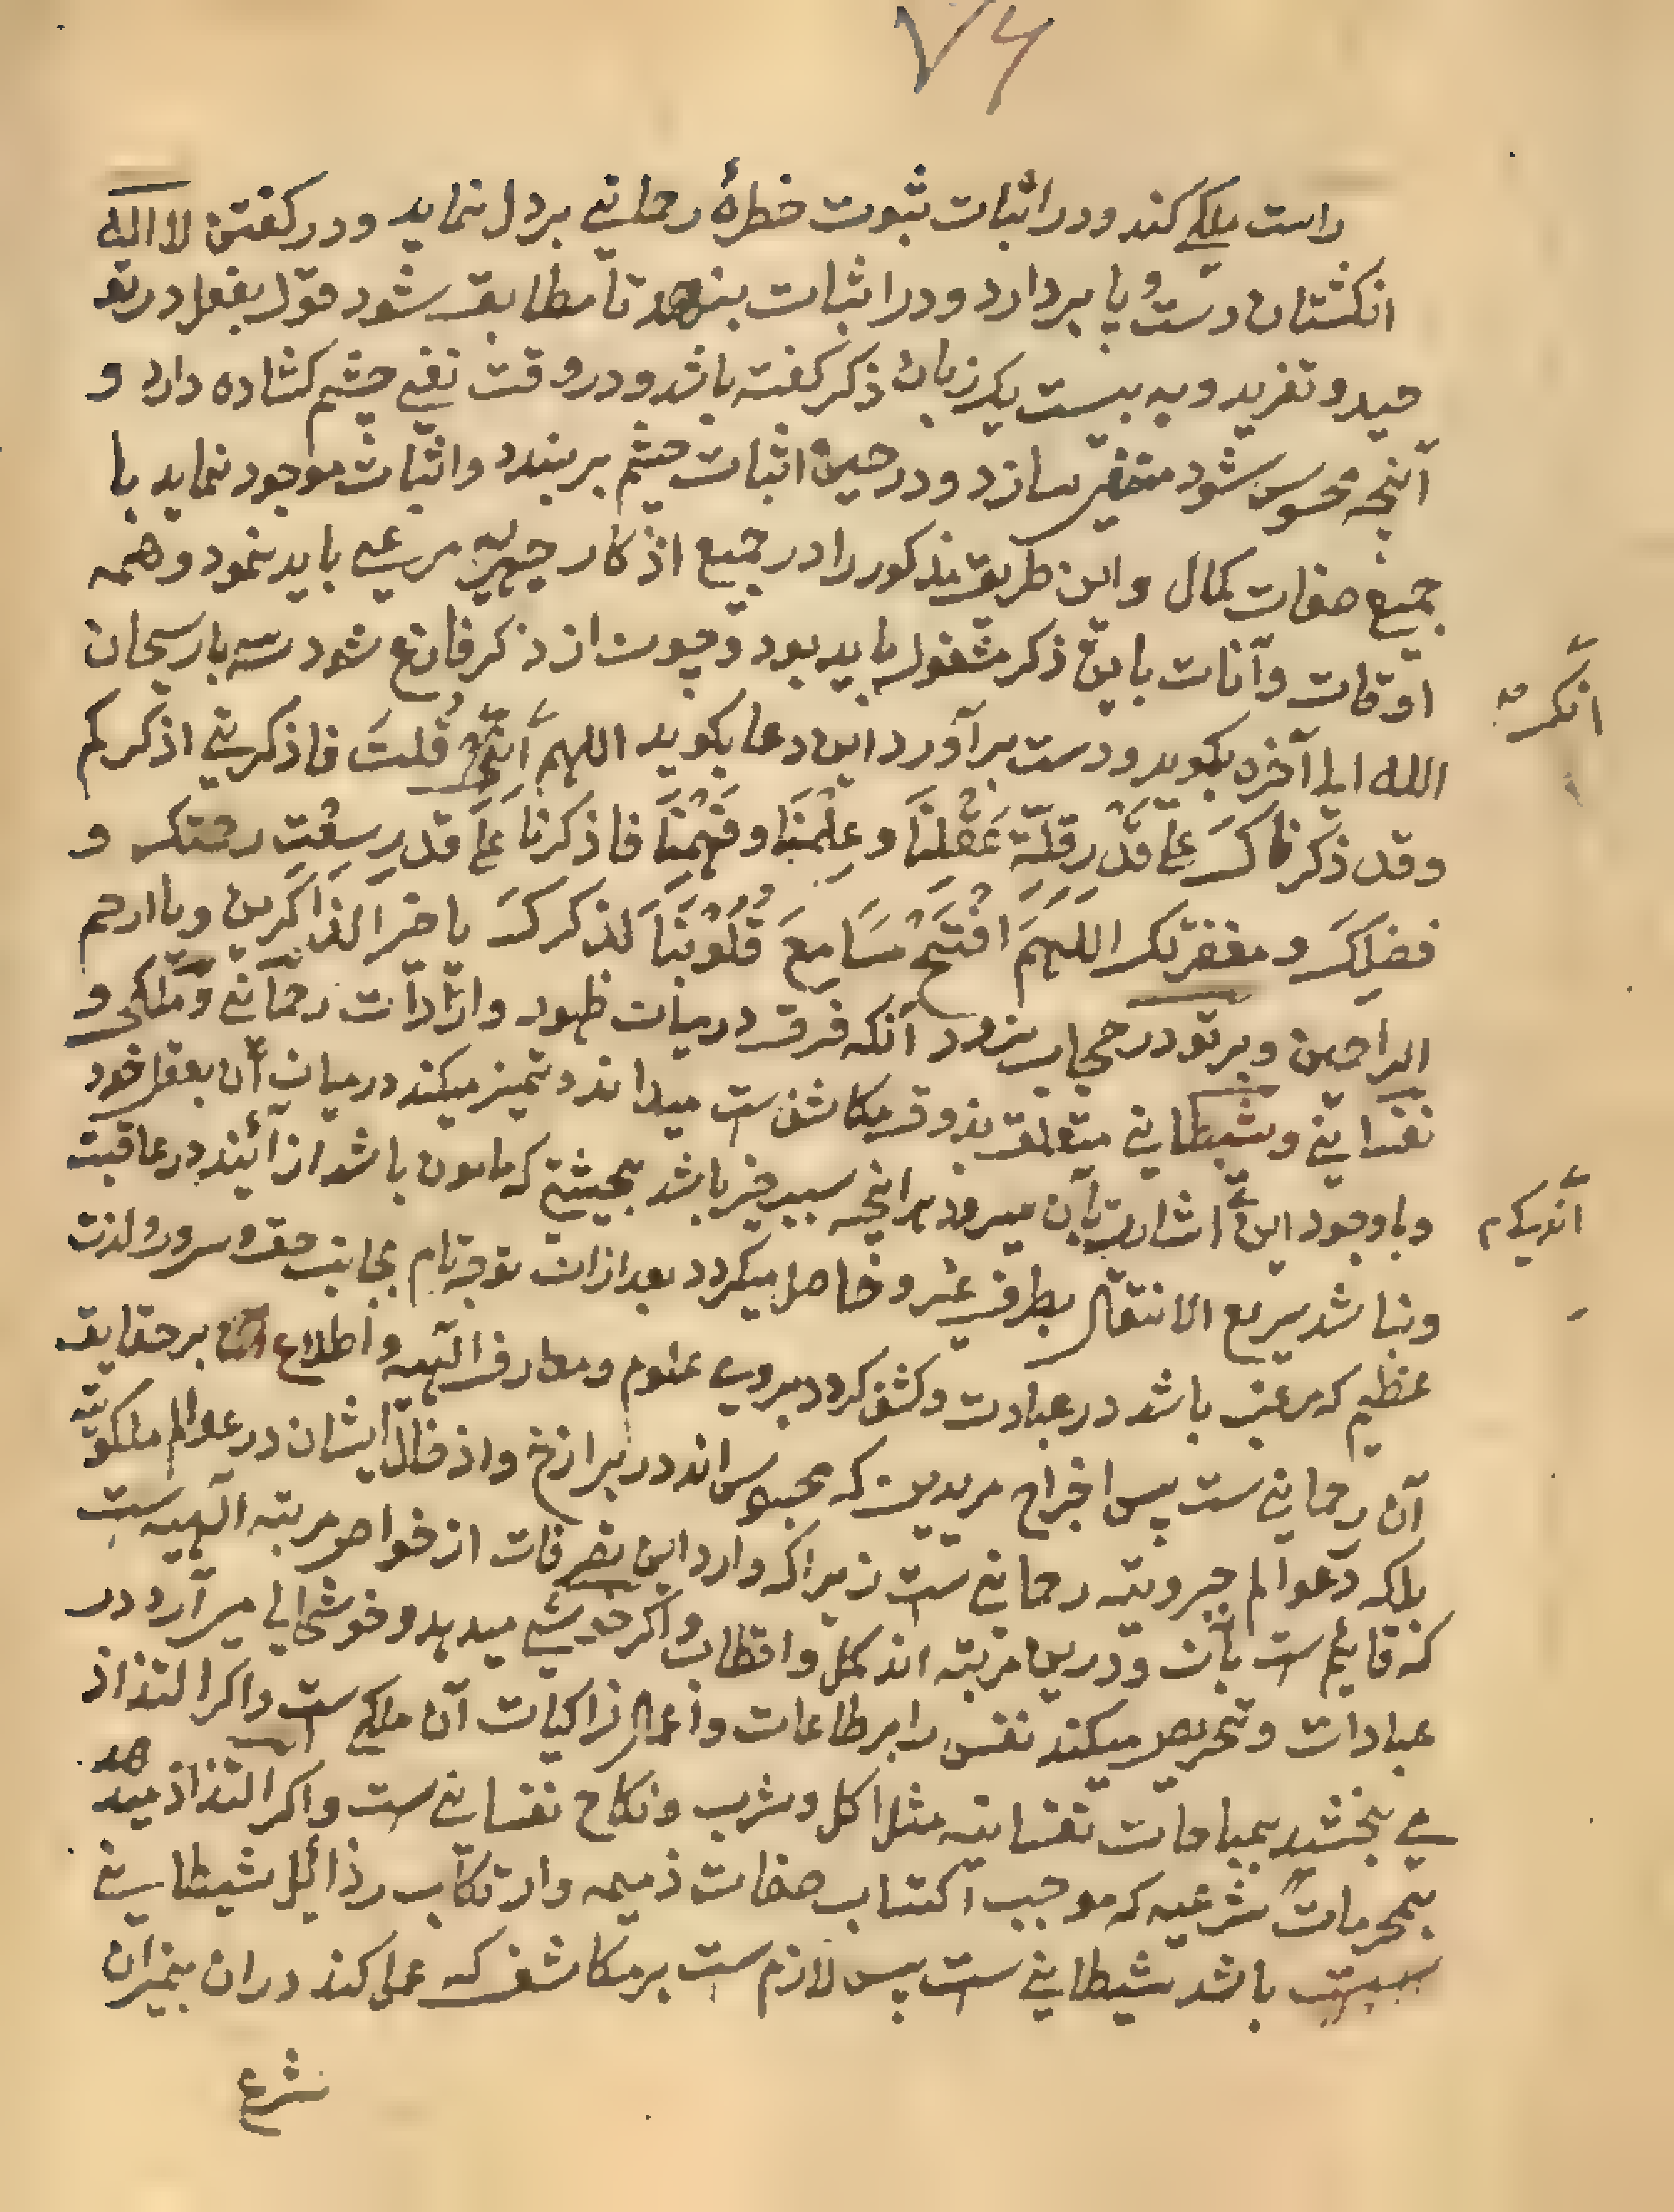 ۷۶
راست ملکی کند و در اثبات ثبوت خطرهٔ رحمانی بر دل نماید و در کفتن لا اله
انکشتان دست و پا بردارد و در اثبات بنهد تا مطابق شود قول بفعل در تو
حید و تفرید و به بیست یک زبان ذکر کفته باشد و در وقت نفی چشم کشاده دارد و
آنچه محسوس شود متغیر سازد و در حین اثبات چشم بربندد و اثبات موجود نماید با
جمیع صفات کمال و این طریق مذکور را در جمیع اذکار جهریه مرعی باید نمود و همه
اوقات و آنات باین ذکر مشغول باید بود و چون از ذکر فارغ شود سه بار سبحان
الله الی آخره بکوید و دست برآورد این دعا بکوید اللهم قلت فاذکرنی اذکرکم
وقد ذکرناک علی قدر قلة عقلنا وعلمنا وفهمنا فاذکرنا علی قدر سعت رحمتک و
فضلک و مغفرتک اللهم افتح مسامع قلوبنا لذکرک یا خیر الذاکرین ویا ارحم
الراحمین و بر تو در حجاب نرود آنکه فرق در میان ظهور وارادات رحمانی و ملکی و
نفسانی و شیطانی متعلق بذوق مکاشف ست میداند و تمیز میکند در میان آن بعقل خود
و باوجود این اشارت بآن میرود هرانچه سبب خیر باشد بحیثیتی که مامون باشد از آئند در عاقبت
و نباشد سریع الانتقال بطرف غیر و حاصل میکردد بعد ازان توجه تام بجانب حق و سرور و لذت
عظیم که مرغب باشد در عبادت و کشف کردد بروی علوم و معارف الهیه و اطلاع بر حقایق
آن رحمانی ست پس اخراج مریدین که محبوس اند در برازخ و ادخال ایشان در عوالم ملکوتیه
بلکه در عوالم جبروتیه رحمانی ست زیراکه وارد این تصرفات از خواص مرتبه الهیه ست
که قایم ست بآن و درین مرتبه اند کمل و اقطاب و اکر خوشی میدهد و خوشحالی می آرد در
عبادات و تحریص میکند نفس را بر طاعات و اعمال زاکیات آن ملکی ست و اکر التذاذ
می بخشید بمباحات نفسانیه مثل اکل و شرب و نکاح نفسانی ست و اکر التذاذ میدهد
بمحرمات شرعیه که موجب اکتساب صفات ذمیمه و ارتکاب رذائل شیطانی
باشد شیطانی ست پس لازم ست بر مکاشف که عمل کند دران بمیزان
شرع